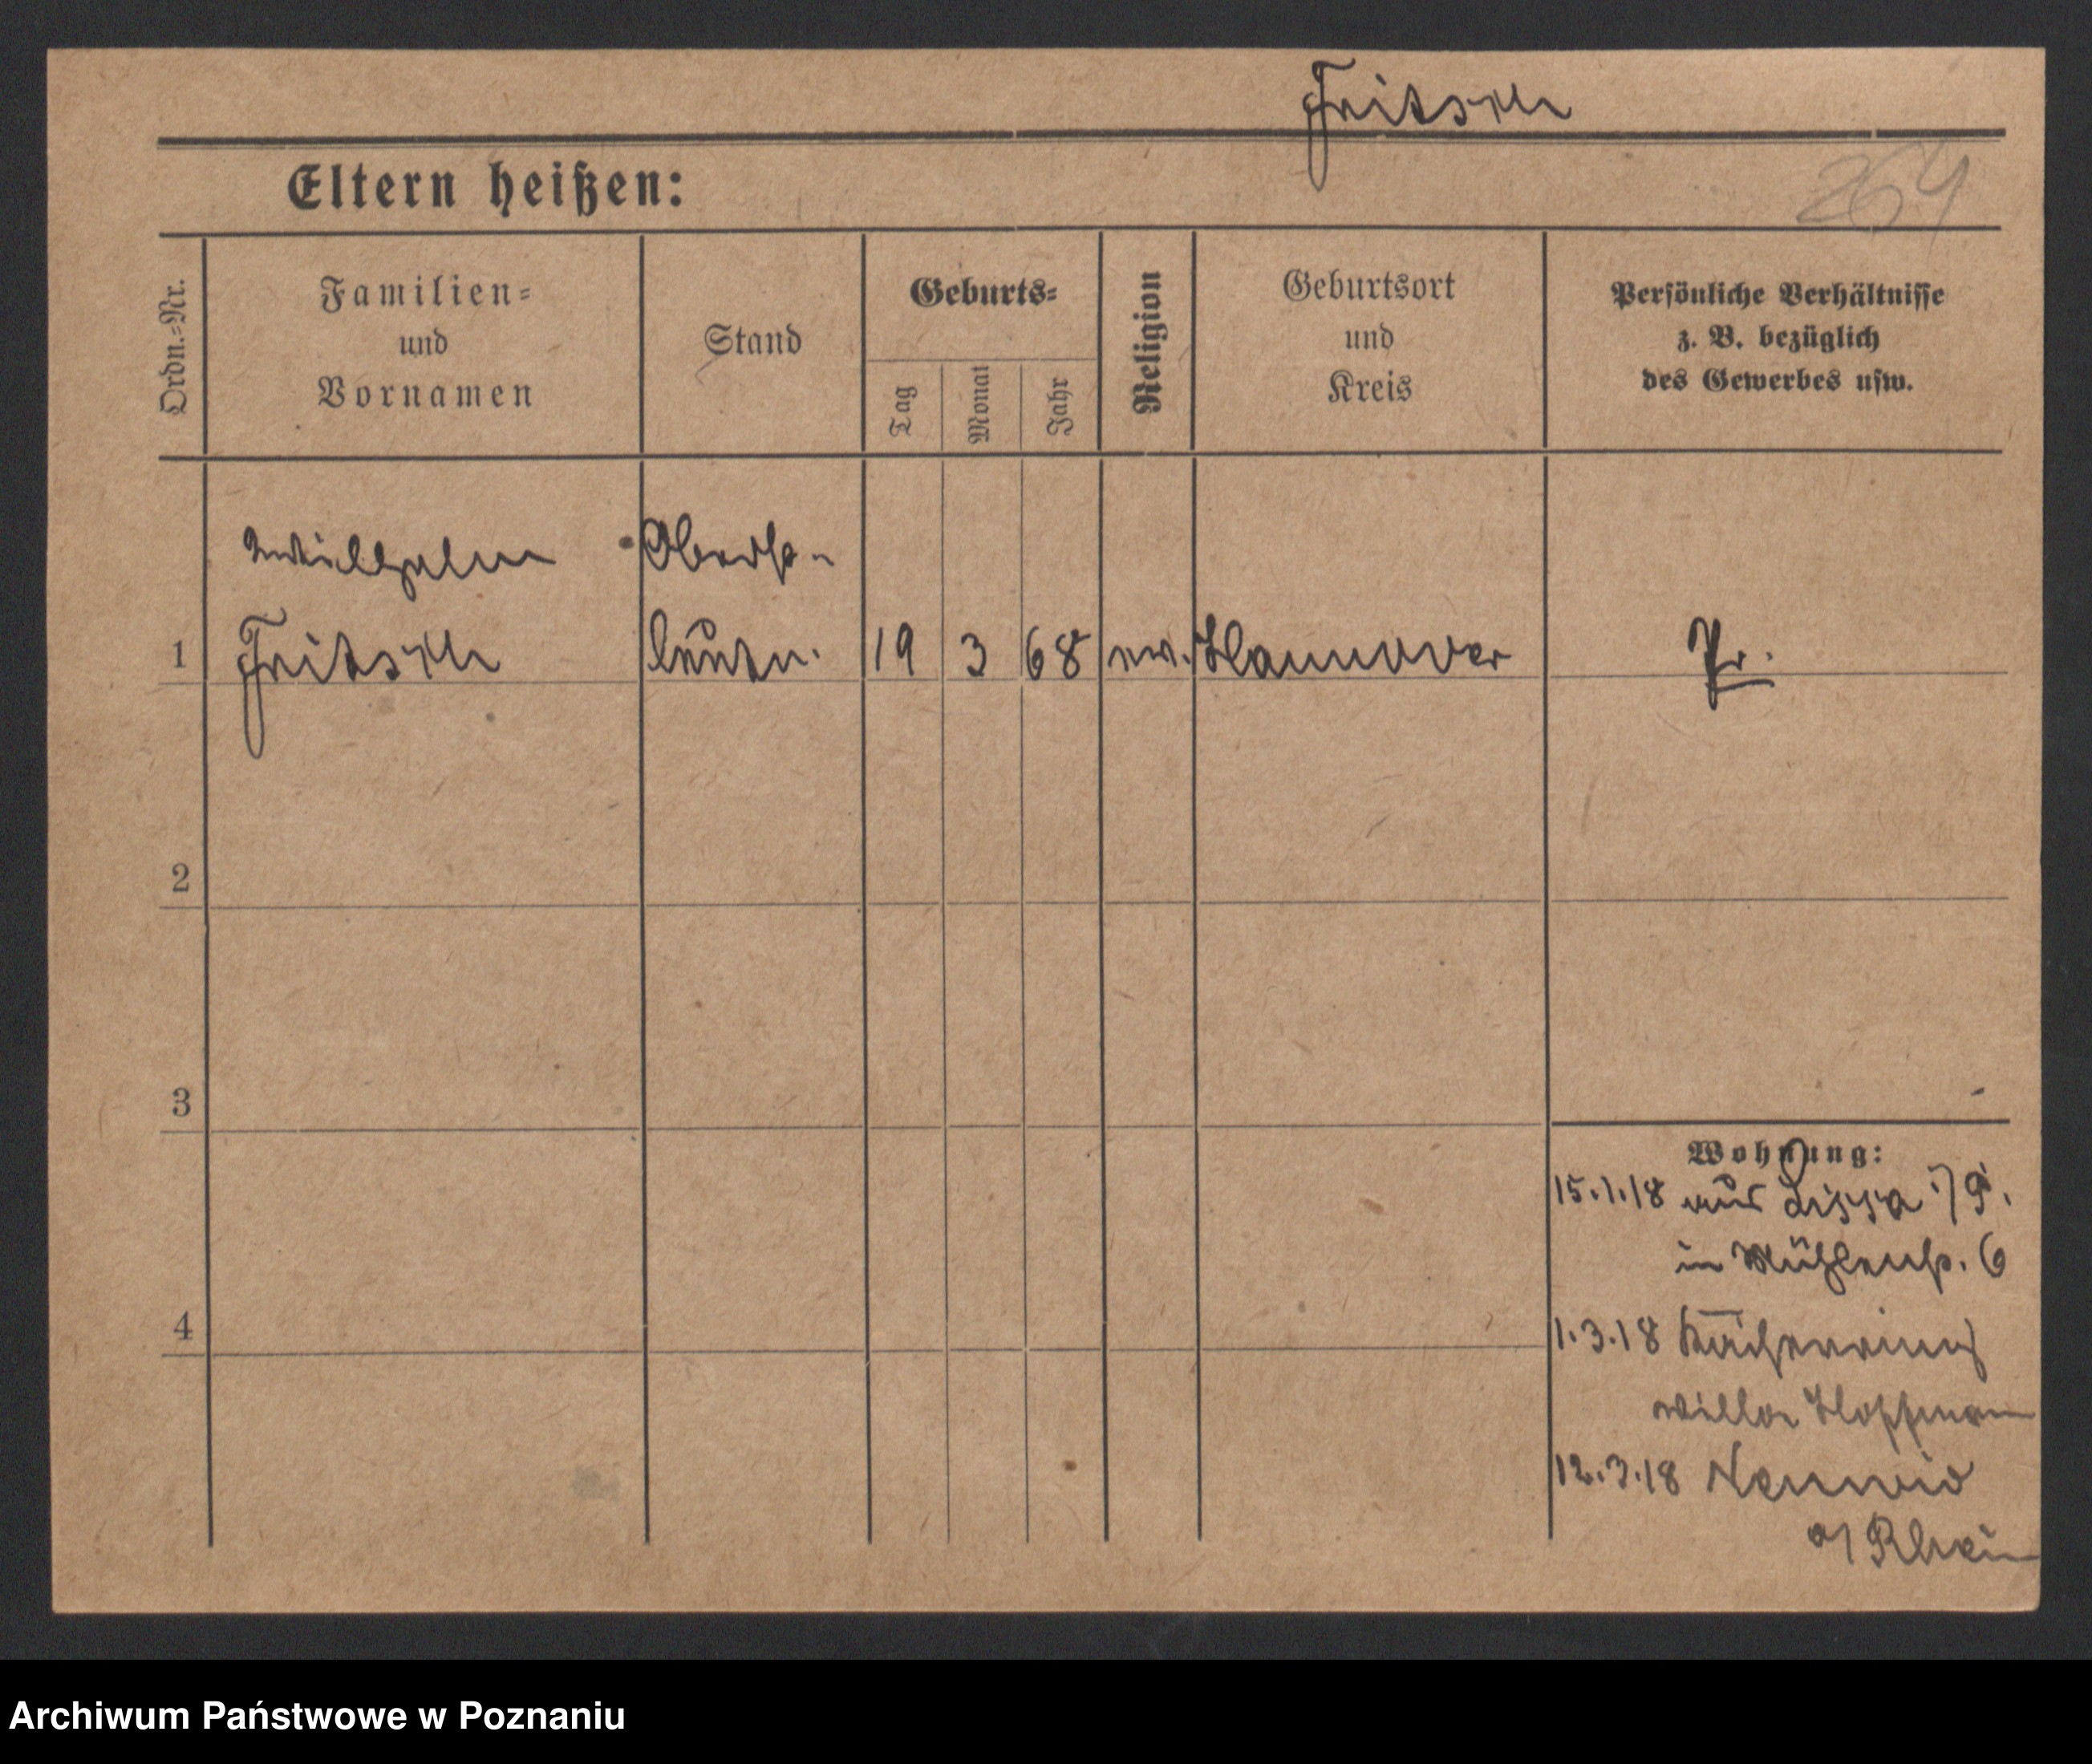 Fritsch
264
Eltern heißen:
Ordn.-Nr.
Familien-
und
Vornamen
Stand
Geburts-
Tag
Monat
Jahr
Religion
Geburtsort
und
Kreis
Persönliche Verhältnisse
z. B. bezüglich
des Gewerbes usw.
Wilhelm
Oberst-
1 Fritsch leutn. 19 3 68 ev. Hannover Pr.
2
3
Wohnung:
15.1.18 aus Lissa i/P.
in Mühlenstr. 6
4
1.3.18
Villa Hoffmann
12.3.18 Neuwied
a/Rhein
Archiwum Państwowe w Poznaniu